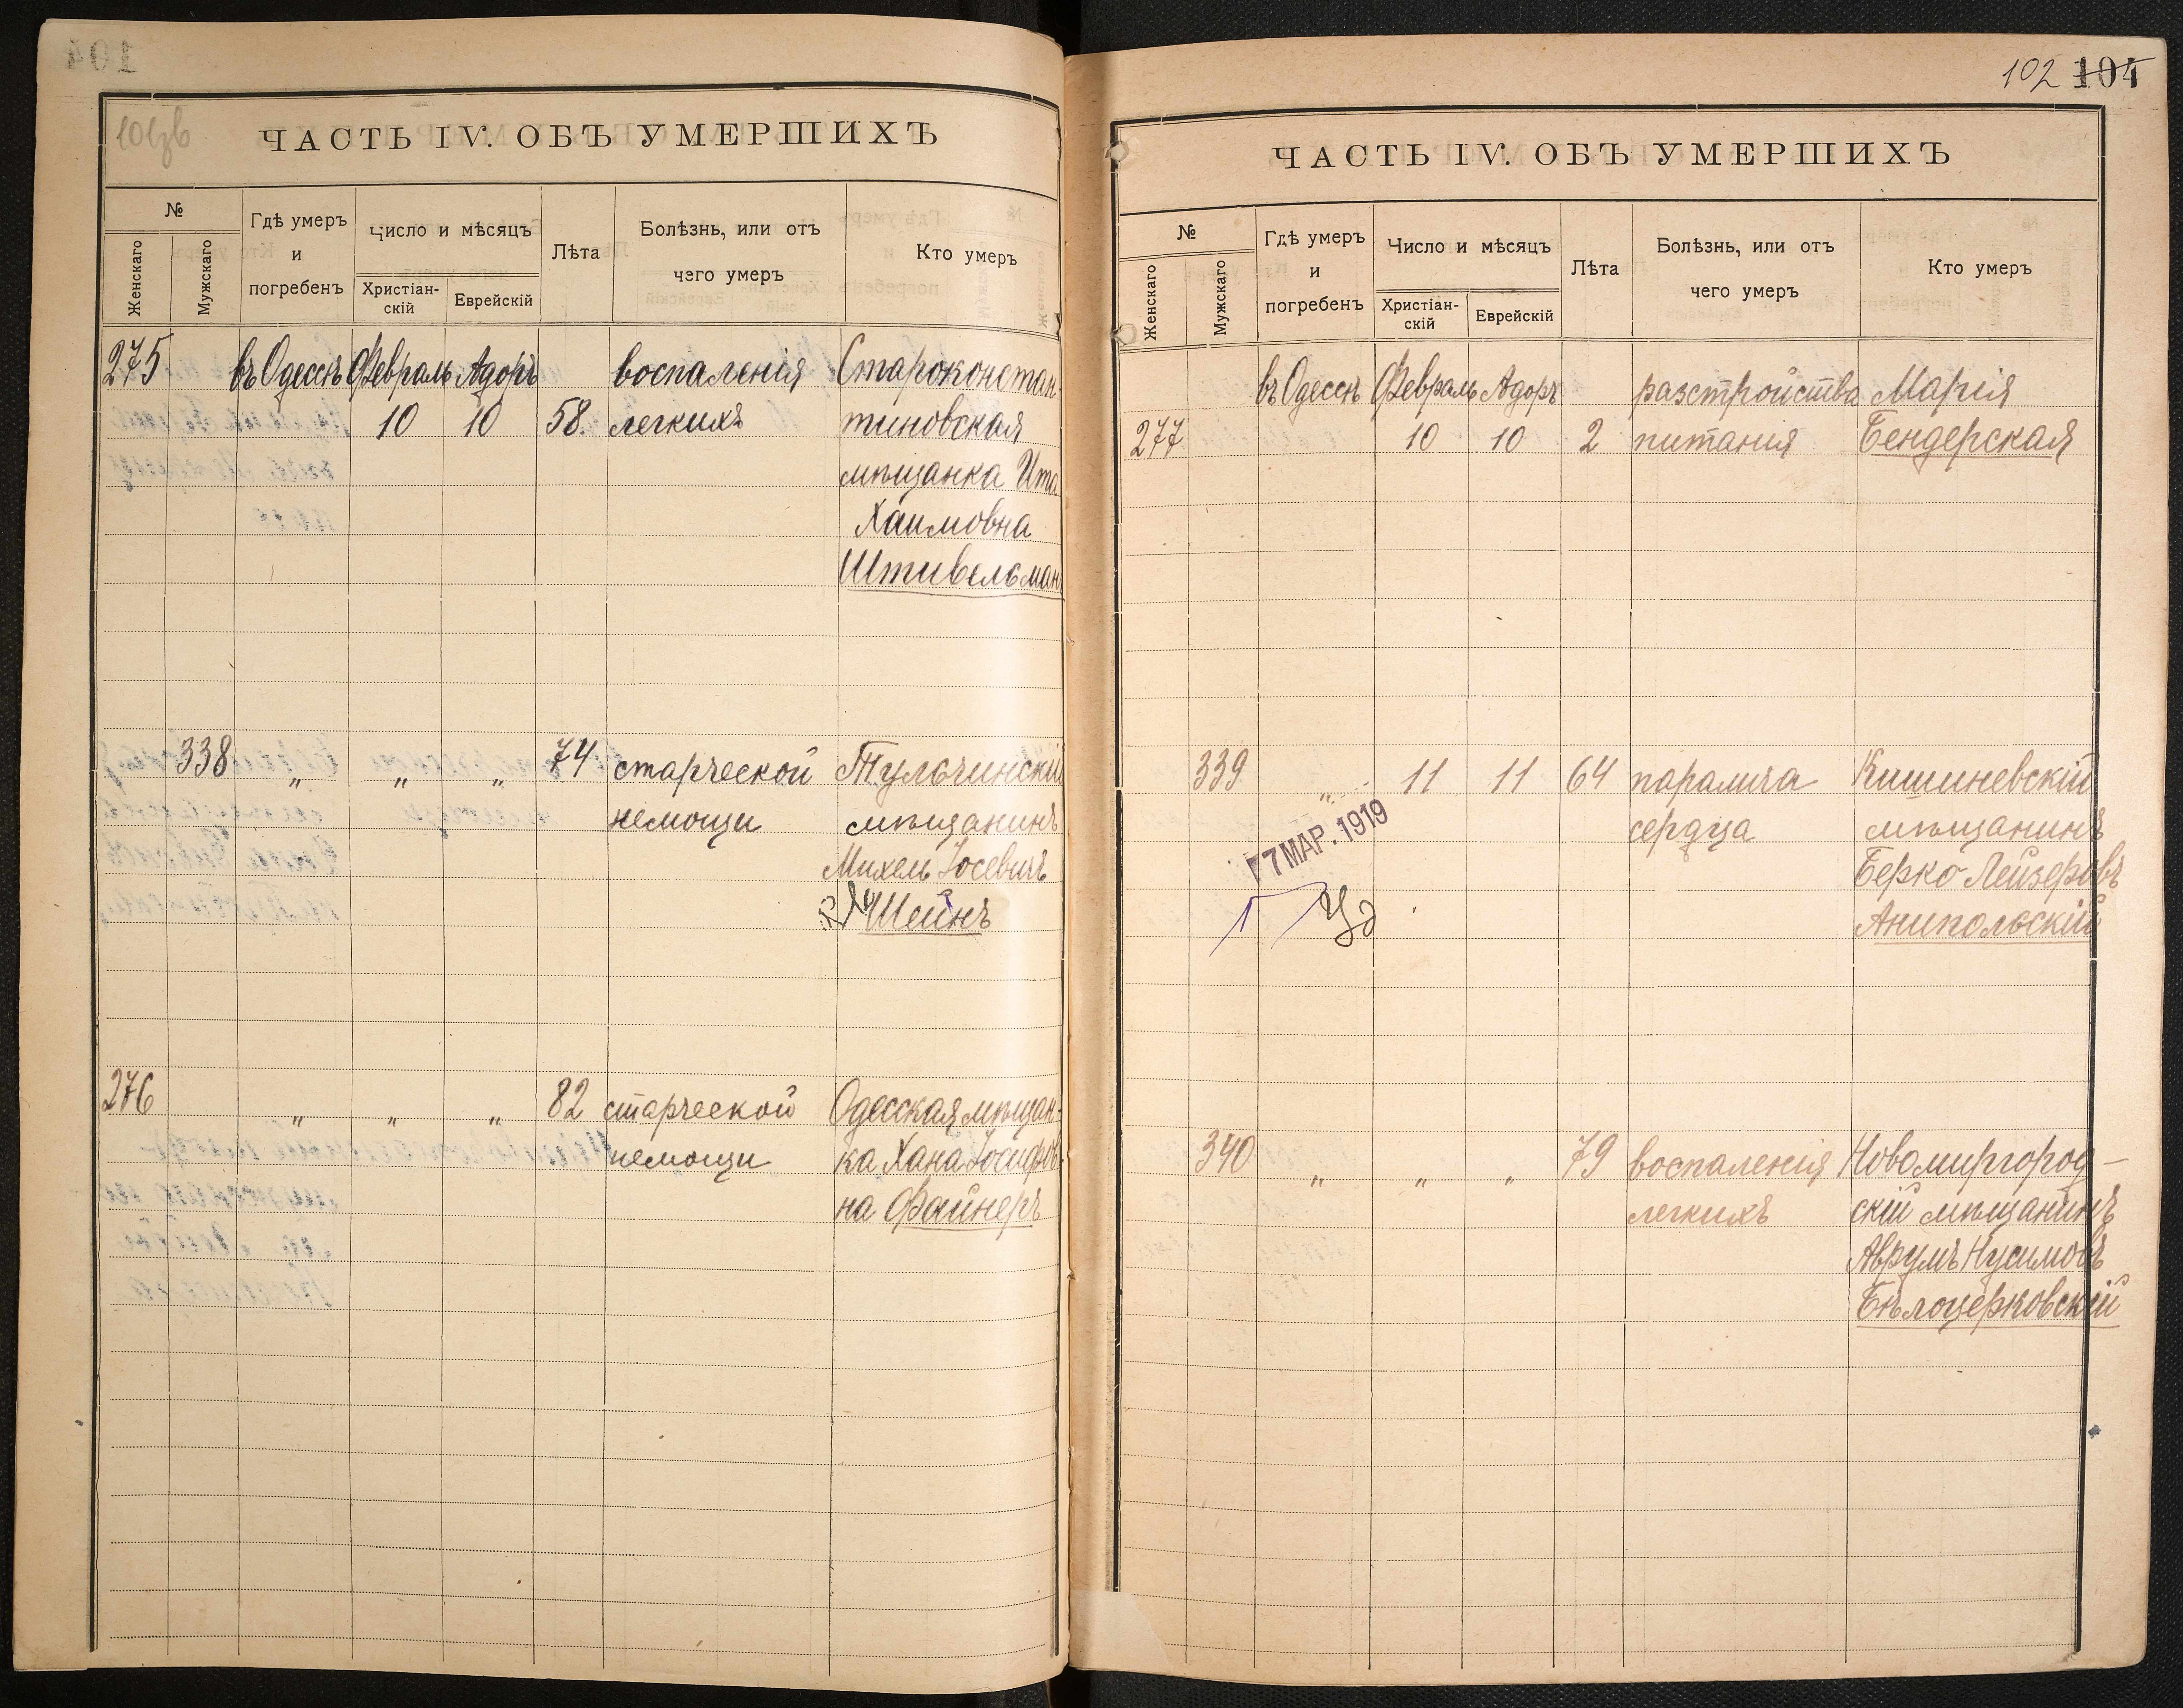 ЧАСТЬ IV. ОБЪ УМЕРШИХЪ
№
Женскаго
Мужскаго
Гдѣ умеръ
и
погребенъ
Число и мѣсяцъ
Христіан-
скій
Еврейскій
Лѣта
Болѣзнь, или отъ
чего умеръ
Кто умеръ
275 въ Одессѣ Февраль Адоръ воспаленія Староконстан-
10 10 58. легкихъ тиновская
мѣщанка Ита
Хаимовна
Штивельман
338 „ „ „ 74 старческой Тульчинскій
немощи мѣщанинъ
Михель Іосевичъ
Шейнъ
276 „ „ „ 82 старческой Одесская мѣщан-
немощи ка Хана Іосифов-
на Файнеръ
102 104
ЧАСТЬ IV. ОБЪ УМЕРШИХЪ
№
Женскаго
Мужскаго
Гдѣ умеръ
и
погребенъ
Число и мѣсяцъ
Христіан-
скій
Еврейскій
Лѣта
Болѣзнь, или отъ
чего умеръ
Кто умеръ
въ Одессѣ Февраль Адоръ разстройства Марія
277 10 10 2 питанія Бендерская
339 „ 11 11 64 паралича Кишиневскій
сердца мѣщанинъ
Берко Лейзеровъ
Анипольскій
7 МАР. 1919
340 „ „ „ 79 воспаленія Новомиргород-
легкихъ скій мѣщанинъ
Аврумъ Нусимовъ
Бѣлоцерковскій